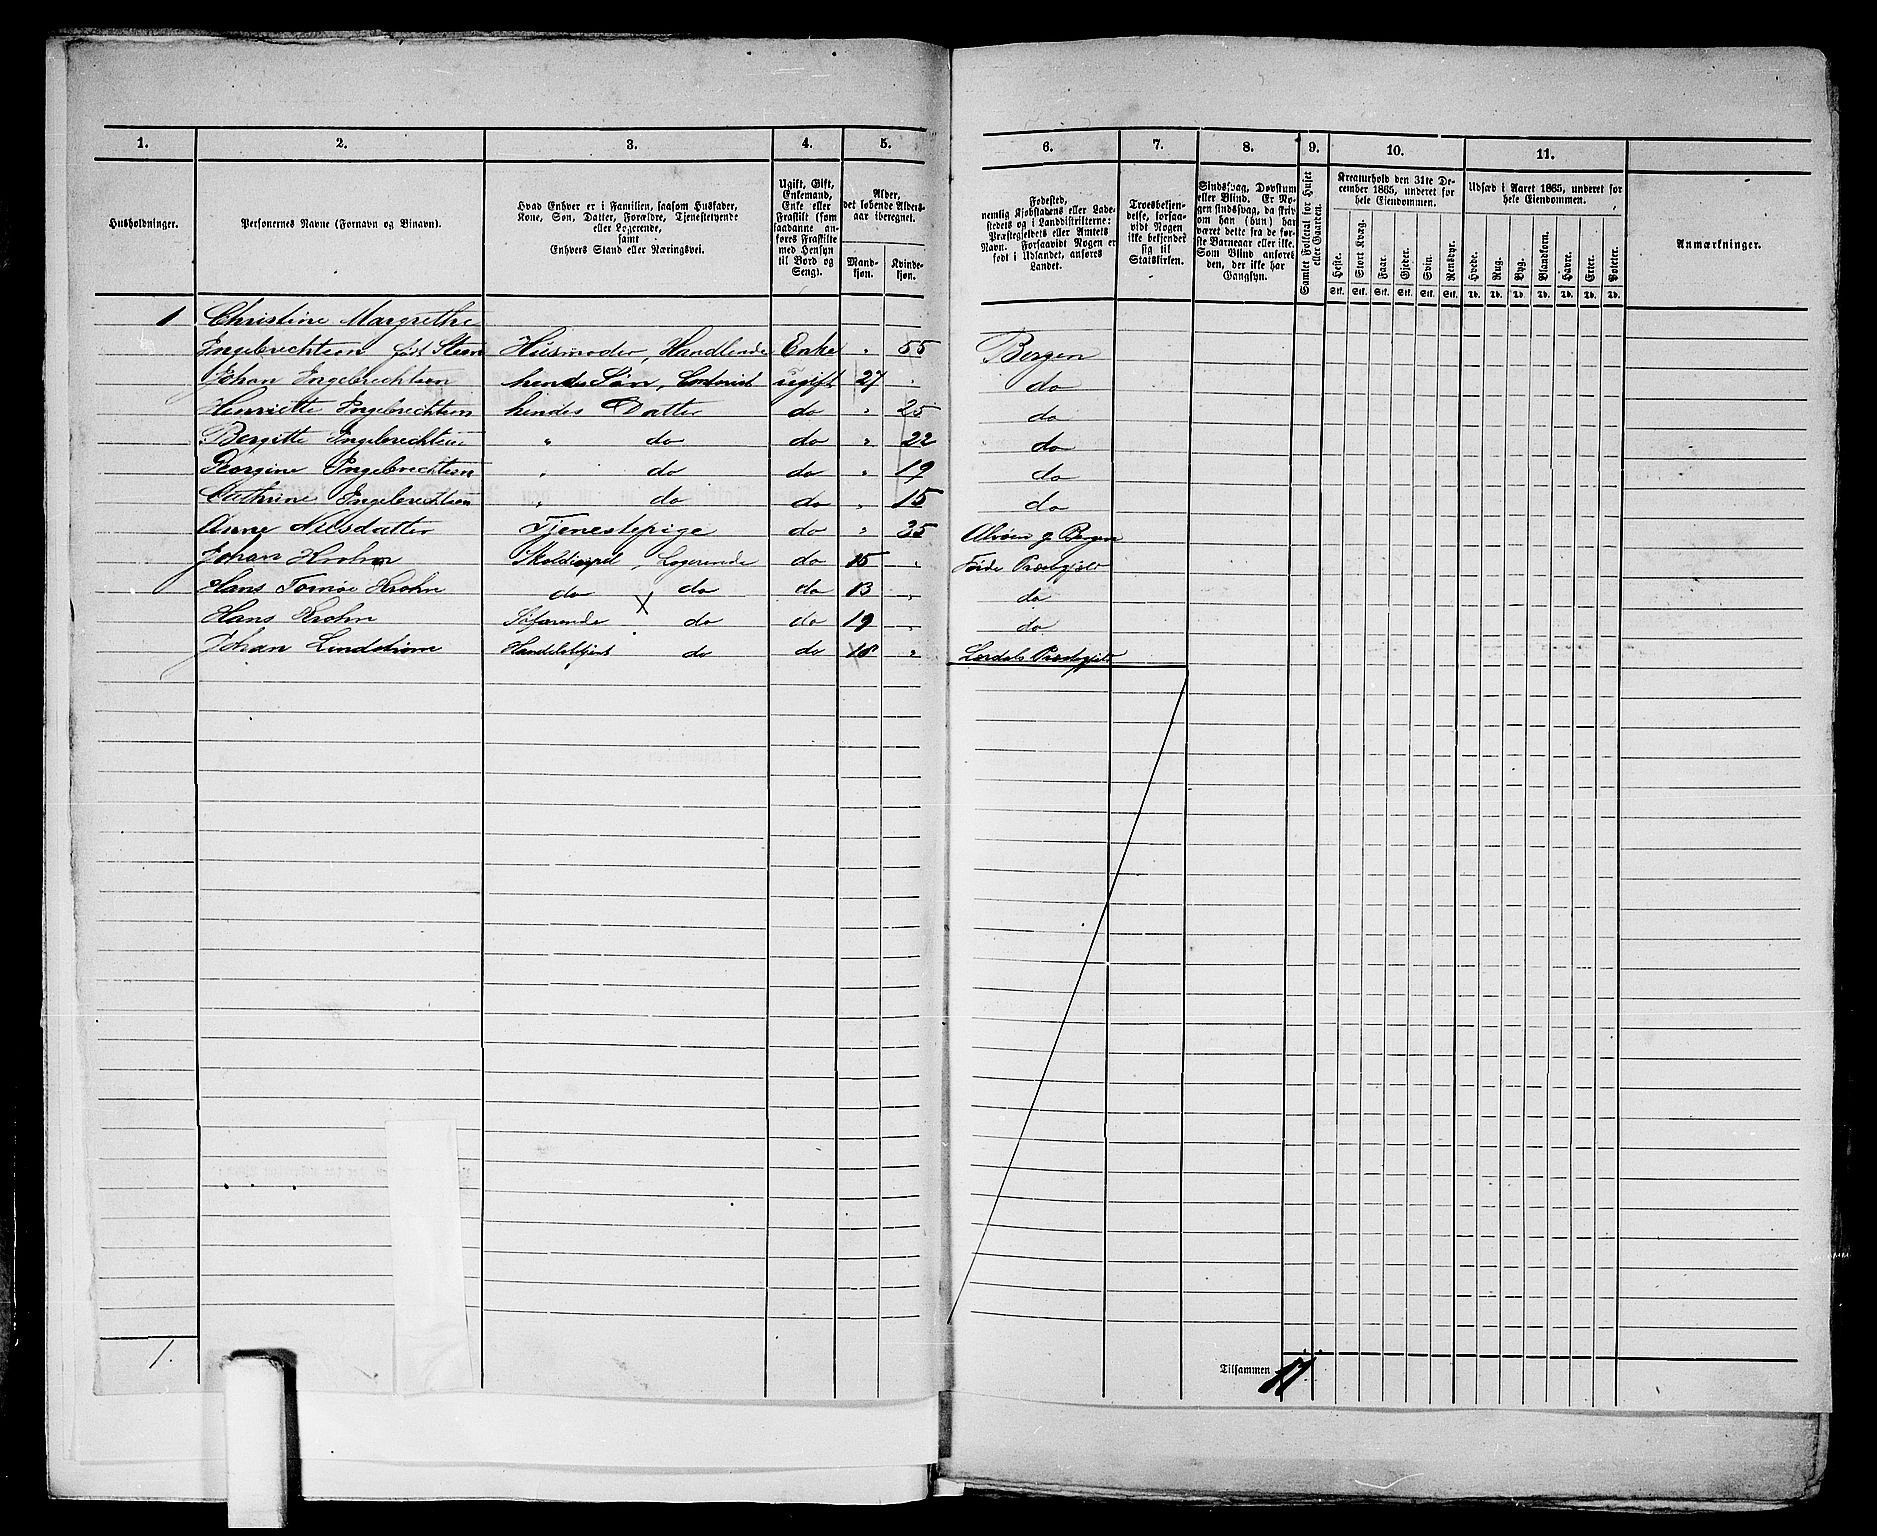 1.
2.
3.
4.
5.
6.
7.
8.
9.
10.
11.
Husholdninger.
Personernes Navne (Fornavn og Binavn).
Hvad Enhver er i Familien, saasom Husfader,
Kone, Søn, Datter, Forældre, Tjenestetyende
eller Logerende,
samt
Enhvers Stand eller Næringsvei.
Ugift, Gift,
Enkemand,
Enke eller
Fraskilt (som
saadanne anføres
Fraskilte
med Hensyn
til Bord og
Seng).
Alder,
det løbende Alders-
aar iberegnet.
Mand-
kjøn.
Kvinde-
kjøn.
Fødested,
nemlig Kjøbstadens eller Lade-
stedets og i Landdistrikterne:
Præstegjeldets eller Amtets
Navn. Forsaavidt Nogen er
født i Udlandet, anføres
Landet.
Troesbekjen-
delse, forsaa-
vidt Nogen
ikke bekjender
sig til
Statskirken.
Sindssvag, Døvstum
eller Blind. Er No-
gen sindssvag, da skri-
ves om han (hun) har
været dette fra de før-
ste Barneaar eller ikke.
Som Blind anføres
den, der ikke har
Gangsyn.
Samlet Folketal for Huset
eller Gaarden.
Kreaturhold den 31te De-
cember 1865, underet for
hele Eiendommen.
Heste. Stort Kvæg. Faar. Gjeder. Svin. Rensdyr.
Stk. Stk. Stk. Stk. Stk. Stk.
Udsæd i Aaret 1865, underet for
hele Eiendommen.
Hvede. Rug. Byg. Blandkorn. Havre. Erter. Poteter.
Td. Td. Td. Td. Td. Td. Td.
Anmærkninger.
1 Christine Margrethe
Engebrechtsen født Steen Huusmoder, Handlende Enke " 55 Bergen
Johan Engebrechtsen hendes Søn, Contorist ugift 27 " do
Henriette Engebrechtsen hendes Datter do " 25 do
Bergitte Engebrechtsen " do do " 22 do
Georgine Engebrechtsen " do do " 19 do
Cathrine Engebrechtsen " do do " 15 do
Anne Nilsdatter Tjenestepige do " 35 Bergen
Johan Krohn Logerende do 15 " Førde Præstegield
Hans Krohn do do do 13 " do
Hans Krohn Søfarende do do 19 " do
Johan Lindstrøm Handelsbetjent do do 18 " Lærdals Præstegield
1.
Tilsammen 11